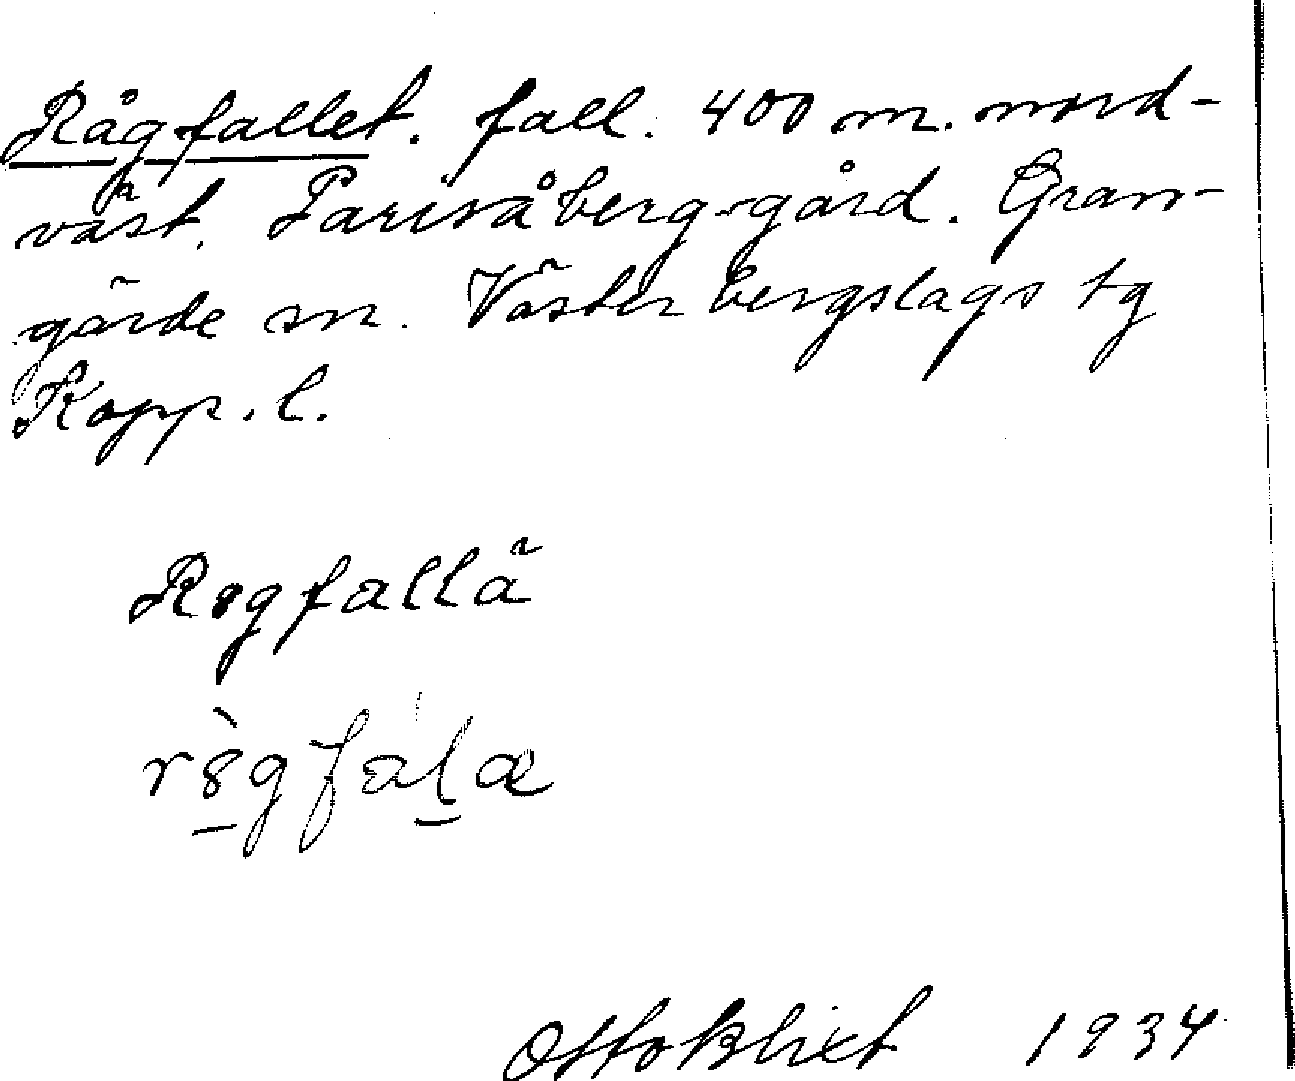 Rågfallet. fall. 400 m. nord-
väst. Parisåberg-gård. Gran-
gärde sn. Västerbergslags tg
Kopp. l.
Rogfallä
Otto Blixt 1934